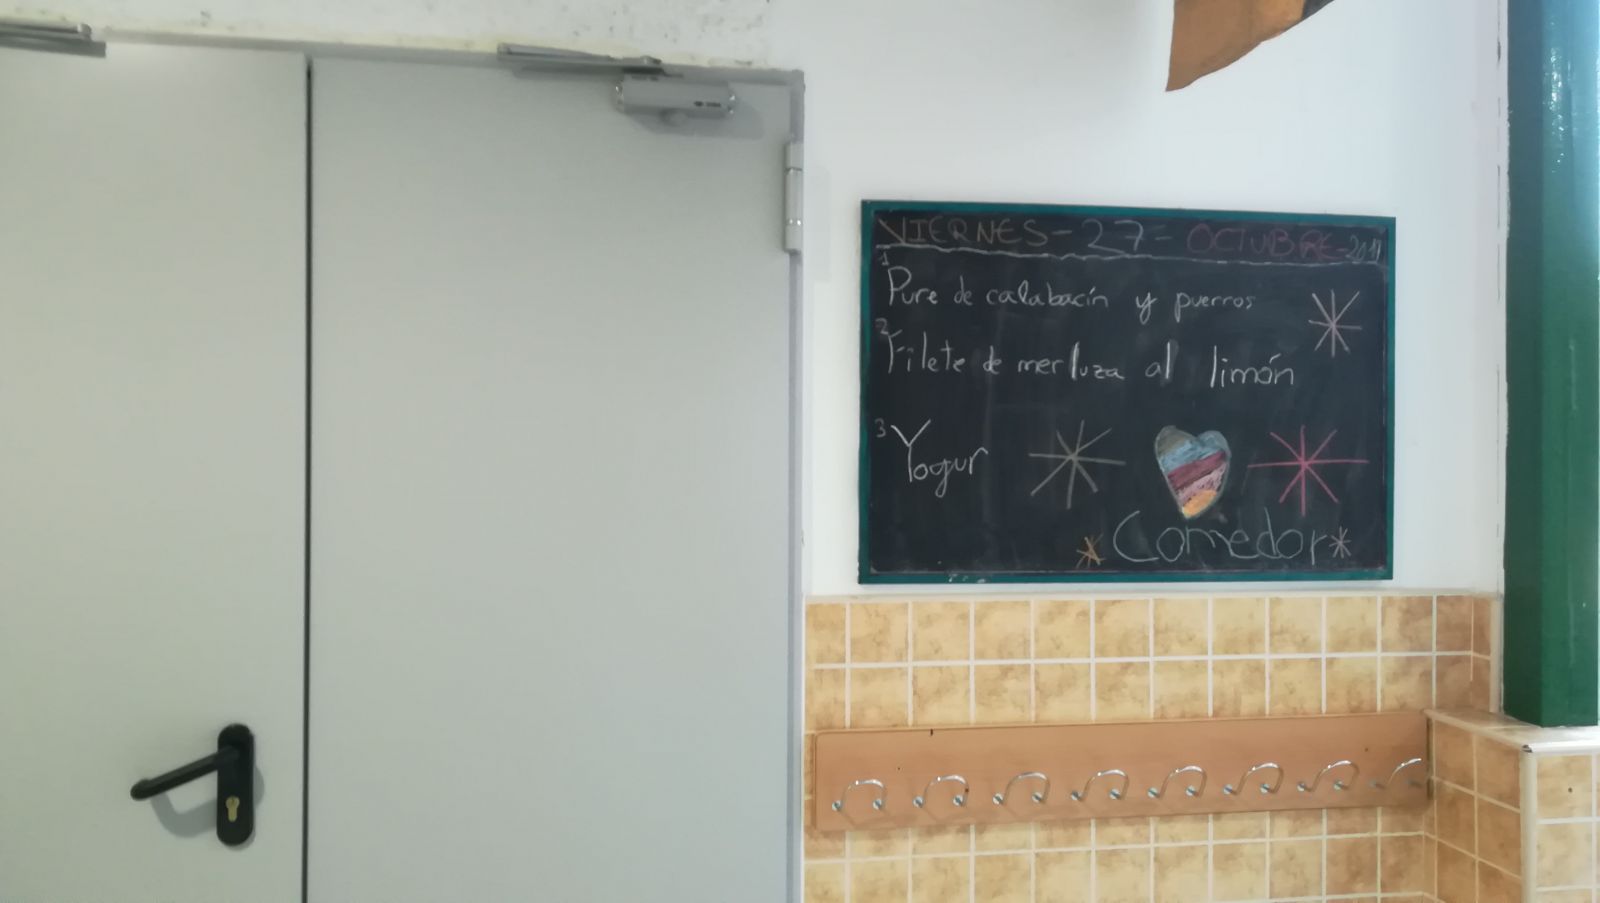 VIERNES - 27 - OCTUBRE - 2017
1 Pure de calabacín y puerros
2 Filete de merluza al limón
3 Yogur
Comedor